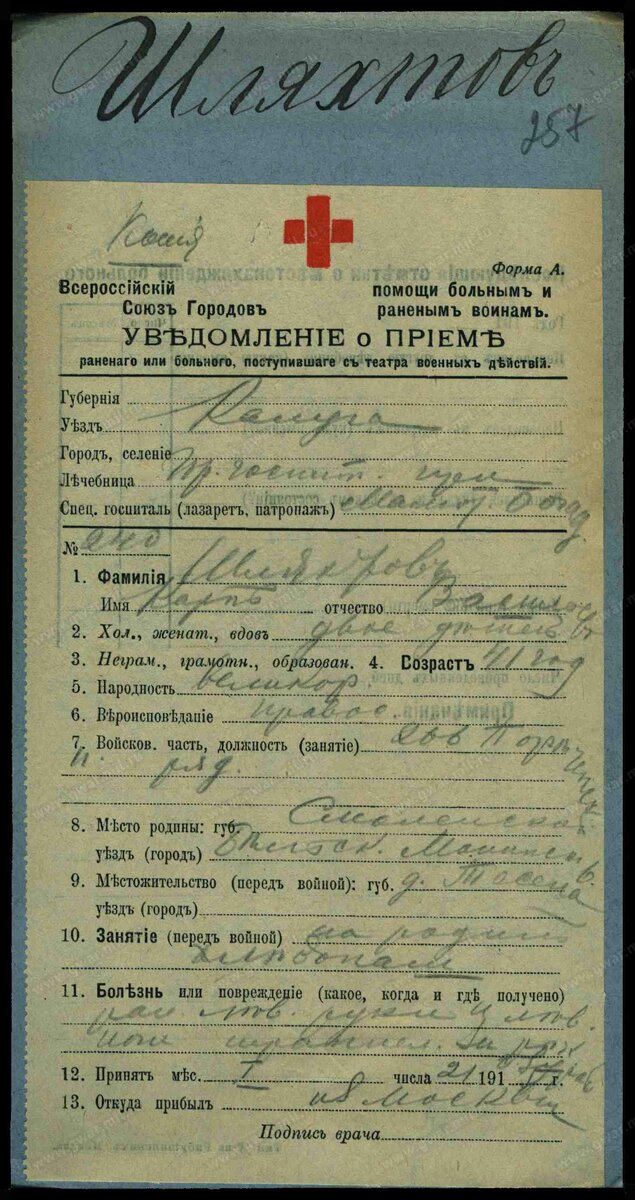 Шляхтовъ
257
Копія
Форма А.
Всероссійскій Союзъ Городовъ помощи больнымъ и раненымъ воинамъ.
УВѢДОМЛЕНІЕ о ПРІЕМѢ
раненаго или больного, поступившаго съ театра военныхъ дѣйствій.
Губернія
Уѣздъ Калуга
Городъ, селеніе
Лѣчебница госпит.
Спец. госпиталь (лазаретъ, патронажъ)
№ 240
1. Фамилія
Имя Карпъ отчество Васильевъ
2. Хол., женат., вдовъ двое дѣтей
3. Неграм., грамотн., образован. 4. Возрастъ 41 год
5. Народность великор.
6. Вѣроисповѣданіе правос.
7. Войсков. часть, должность (занятіе) 266
п. ряд.
8. Мѣсто родины: губ. Смоленской
уѣздъ (городъ) Бѣльск.
9. Мѣстожительство (передъ войной): губ. д.
уѣздъ (городъ)
10. Занятіе (передъ войной) на родинѣ
хлѣбопаш
11. Болѣзнь или поврежденіе (какое, когда и гдѣ получено)
ран лѣв. руки и лѣв.
ноги
12. Принятъ мѣс. I числа 21 191 г.
13. Откуда прибылъ из Москвы
Подпись врача